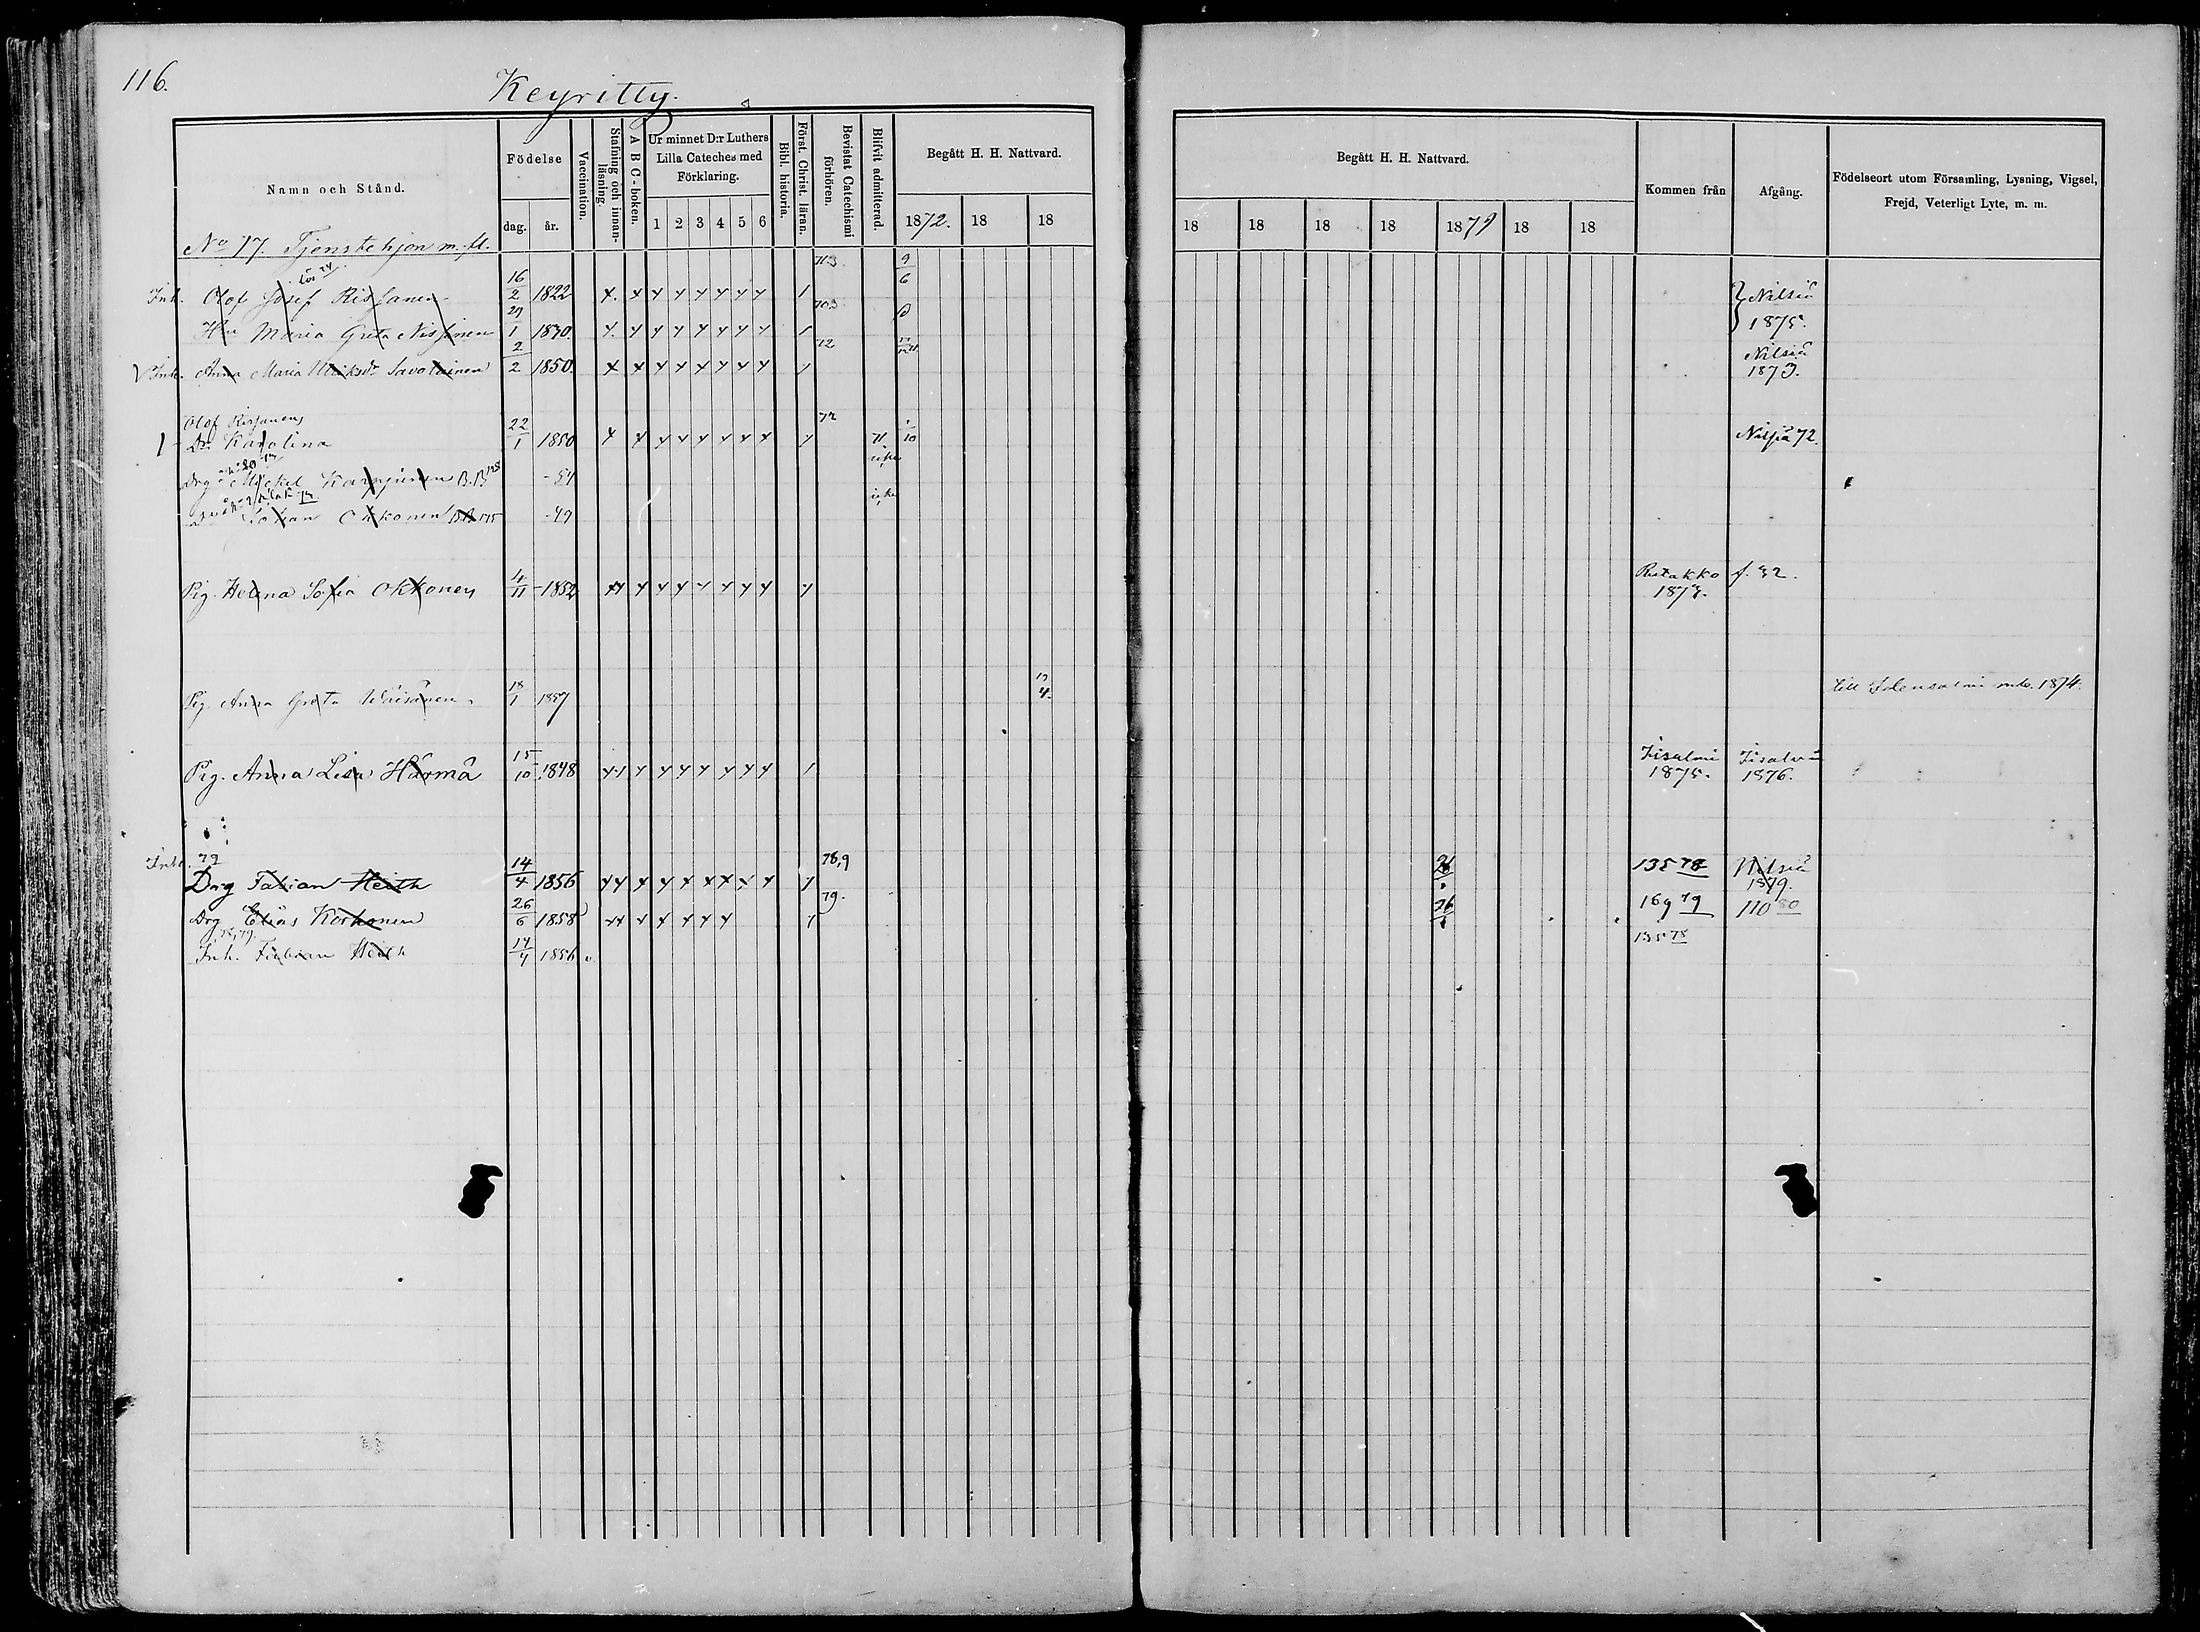 116.
Keyritty.
Namn och Stånd.
Födelse
dag. år.
Vaccination.
Stafning och innanläsning.
A B C-boken.
Ur minnet D:r Luthers
Lilla Cateches med
Förklaring.
1 2 3 4 5 6
Bibl. historia.
Först. Christ. läran.
Bevistat Catechismi förhören.
Blifvit admitterad.
Begått H. H. Nattvard.
1872. 18 18
Begått H. H. Nattvard.
18 18 18 18 1879 18 18
Kommen från
Afgång.
Födelseort utom Församling, Lysning, Vigsel,
Frejd, Veterligt Lyte, m. m.
No 17. Tjenstehjon m. fl.
Inh. Olof Josef Rissanen 16/2 1822 Nilsiä
Hu Maria Greta Nissinen 29/1 1830 1875.
Inh. Anna Maria Savolainen 2/2 1850. 72 Nilsiä
1873.
Olof Rissanens
Dr. Karolina 22/1 1850 72 Nilsiä 72.
Drg Michel -54
Johan Okkonen -49
Pig. Helena Sofia Okkonen 4/11 1852 Rutakko
187
Pig. Anna Greta Wäisänen 18/1 1857 till Idensalmi 1874.
Pig. Anna Lisa Härmä 15/10 1848 Iisalmi 1875. Iisalmi 1876.
Inh. 79
Drg Fabian Heith 14/4 1856 78,9 135 78 Nilsiä
1879.
Drg Elias Korhonen 26/6 1858 79. 26 169 79 110 80
Inh. Fabian Heith 14/4 1856 135 78